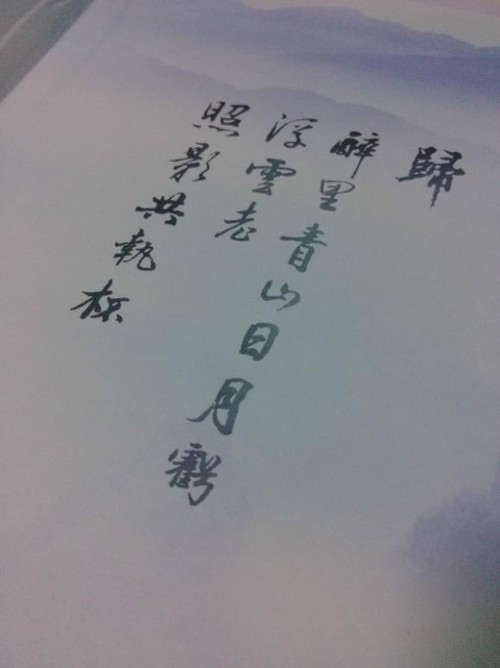 歸
醉里青山日月虧
浮雲老
照影共執杯